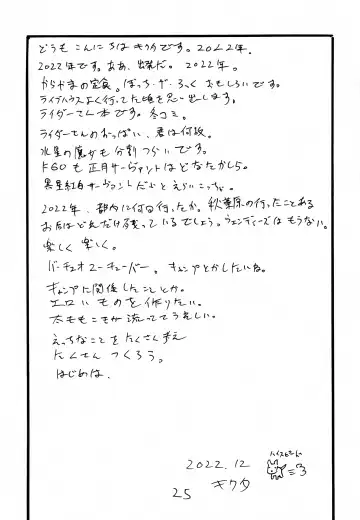 どうも こんにちは キクタです。2022年。
2022年です。ああ、出禁だ。2022年。
からやまの定食。ぼっち・ざ・ろっく おもしろいです。
ライブハウスよく行ってた頃を思い出します。
ライダーさん本です。冬コミ。
ライダーさんのおっぱい、君は何故。
水星の魔女も 分割 つらいです。
FGOも 正月サーヴァントは どなたかしら。
黒星紅白サーヴァントだと えらいこっちゃ。
2022年、都内に何回行ったか。秋葉原の行ったことある
お店はどれだけ残っているでしょう。ウェンディーズは もうない。
楽しく 楽しく。
バーチュオユーチューバー。キャンプとかしたいね。
キャンプに関係したことか。
エロいものを作りたい。
太ももこもが 流ってて うれしい。
えっちなことを たくさん考え
たくさん つくろう。
はじめは、
ハイスピード
2022.12
キクタ
25